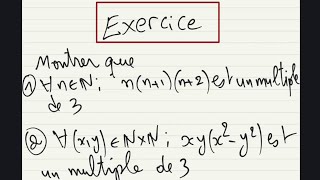 Exercice
Montrer que
① ∀n∈ℕ; n(n+1)(n+2) est un multiple
de 3
② ∀(x,y)∈ℕ×ℕ; xy(x²-y²) est
un multiple de 3